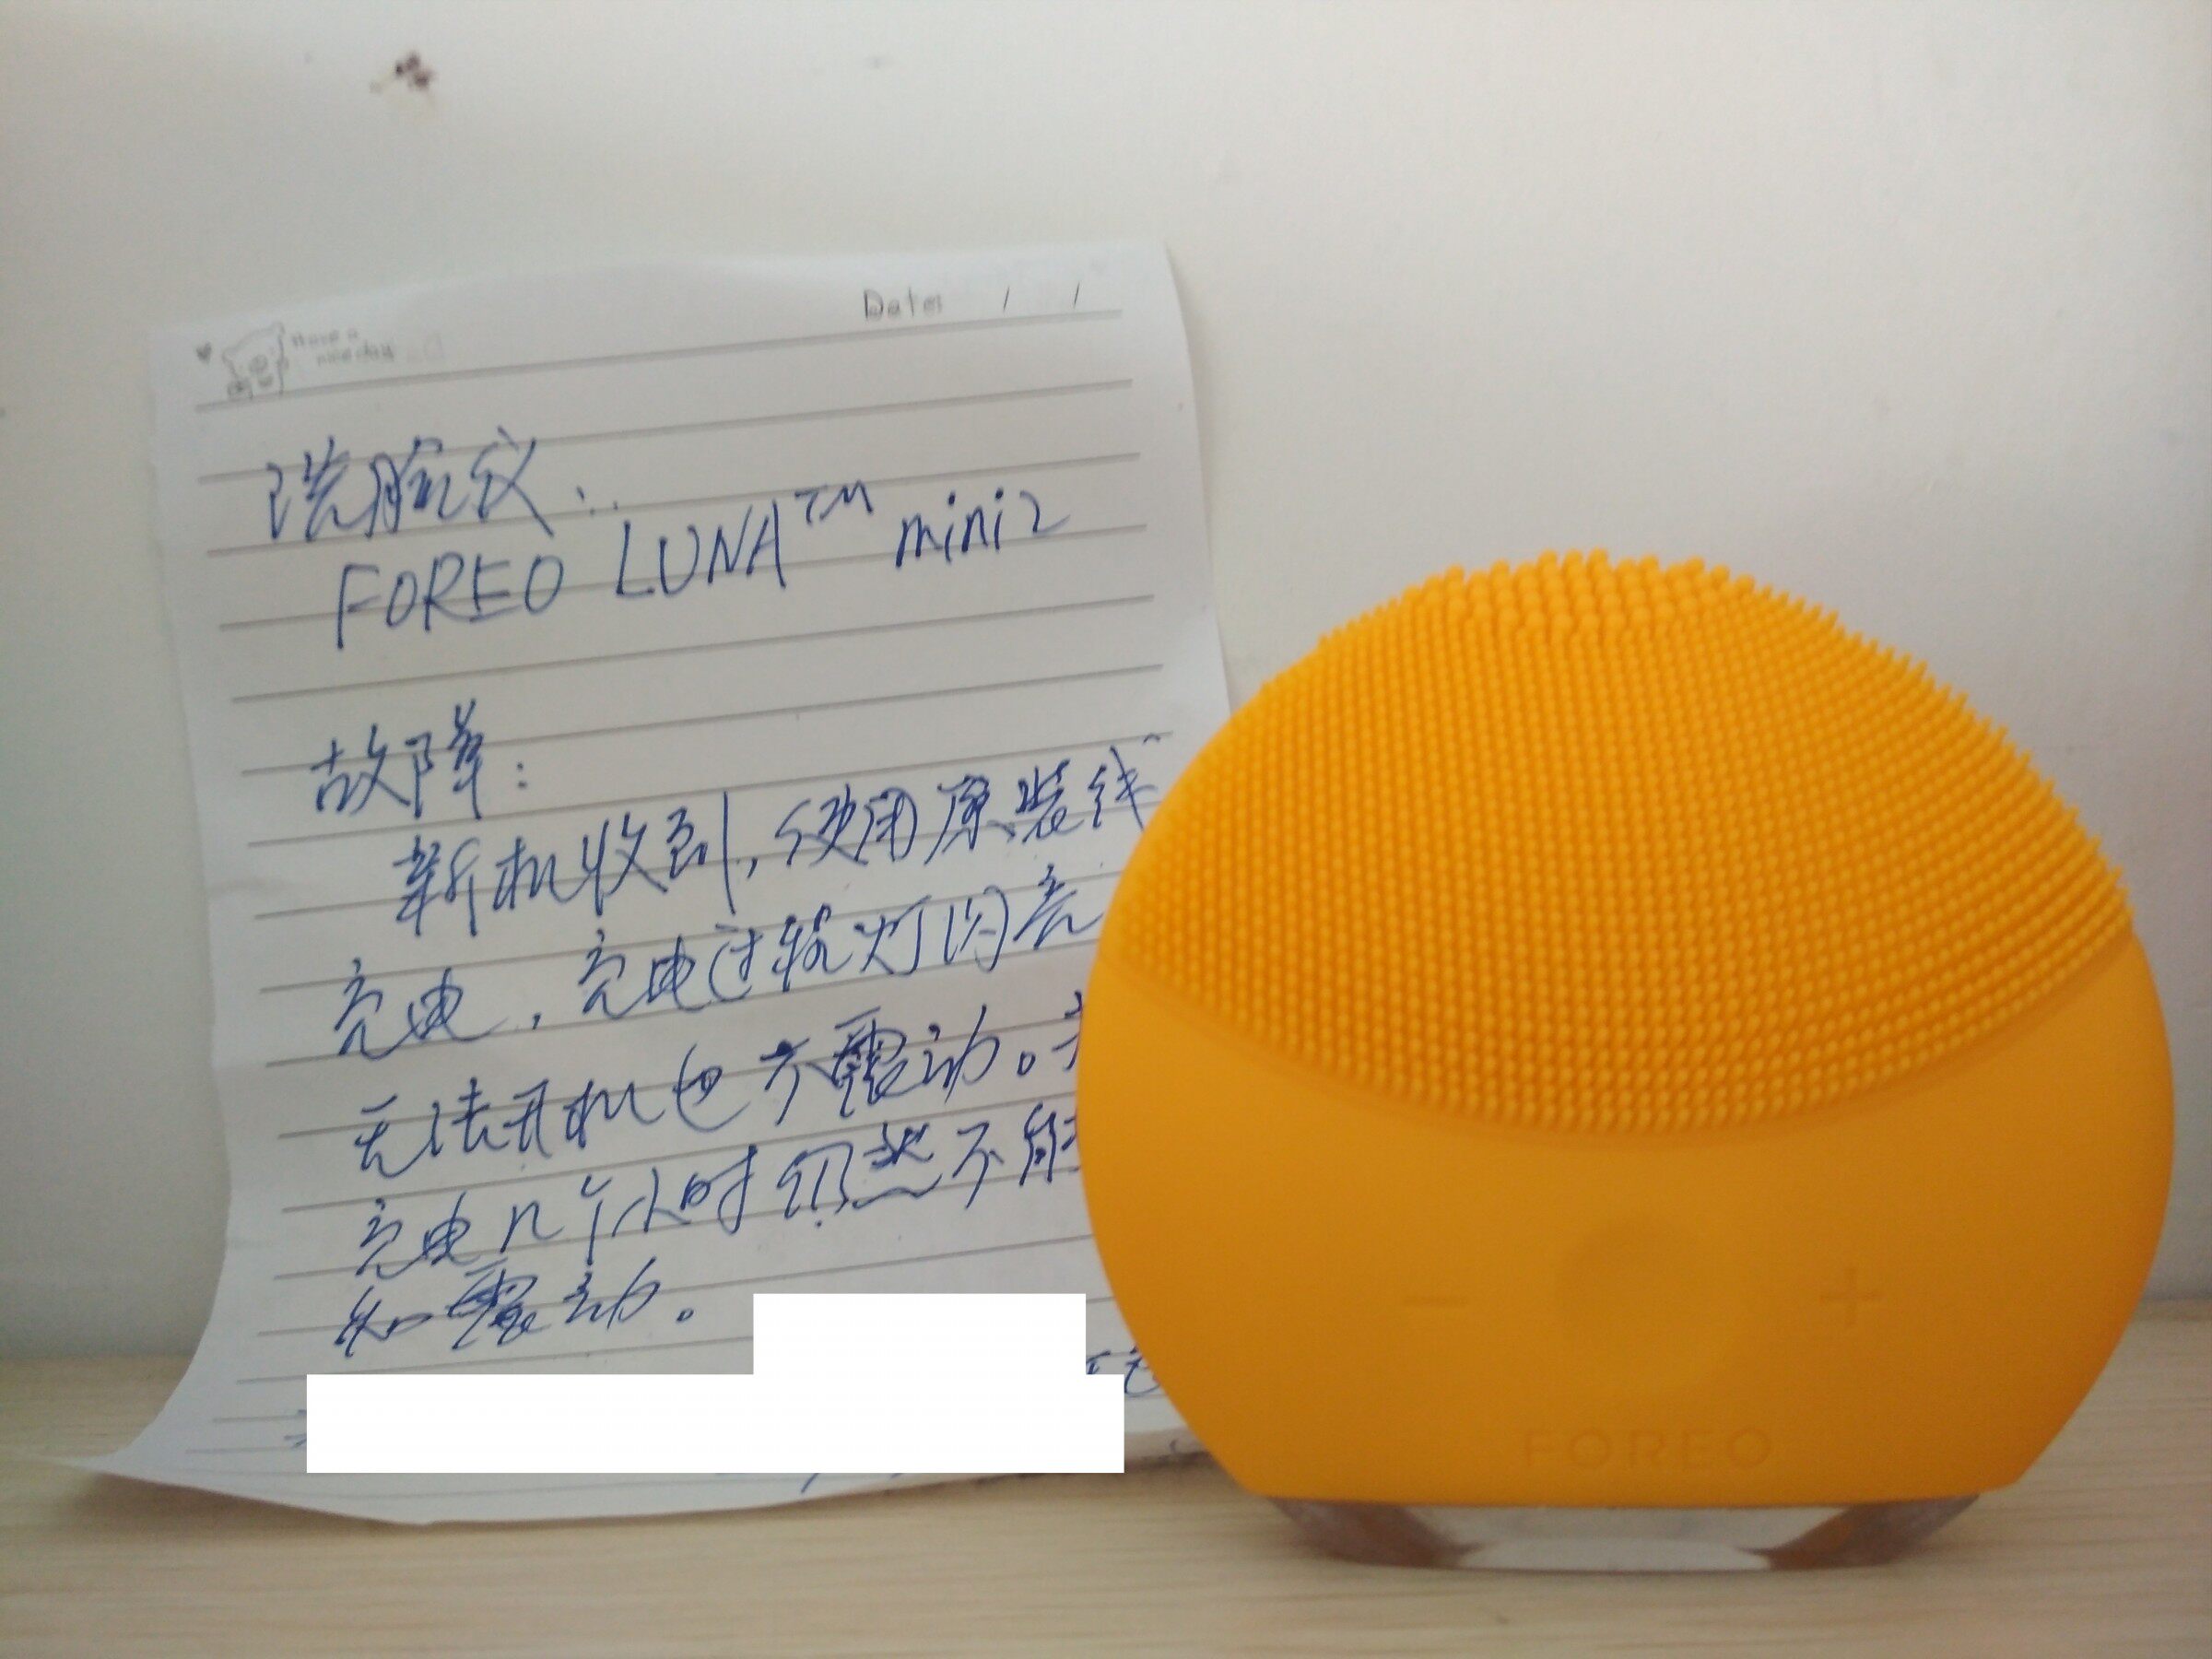 Have a
nice day
Date: / /
洗脸仪:
FOREO LUNA™ mini2
故障:
新机收到,使用原装线
充电,充电过程灯闪亮
无法开机也不震动。
充电几个小时仍然不能
和震动。
- +
FOREO